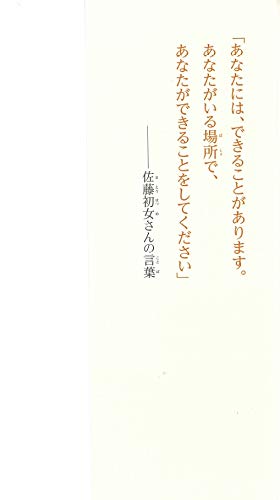 「あなたには、できることがあります。
あなたがいる場所で、
あなたができることをしてください」
――佐藤初女さんの言葉